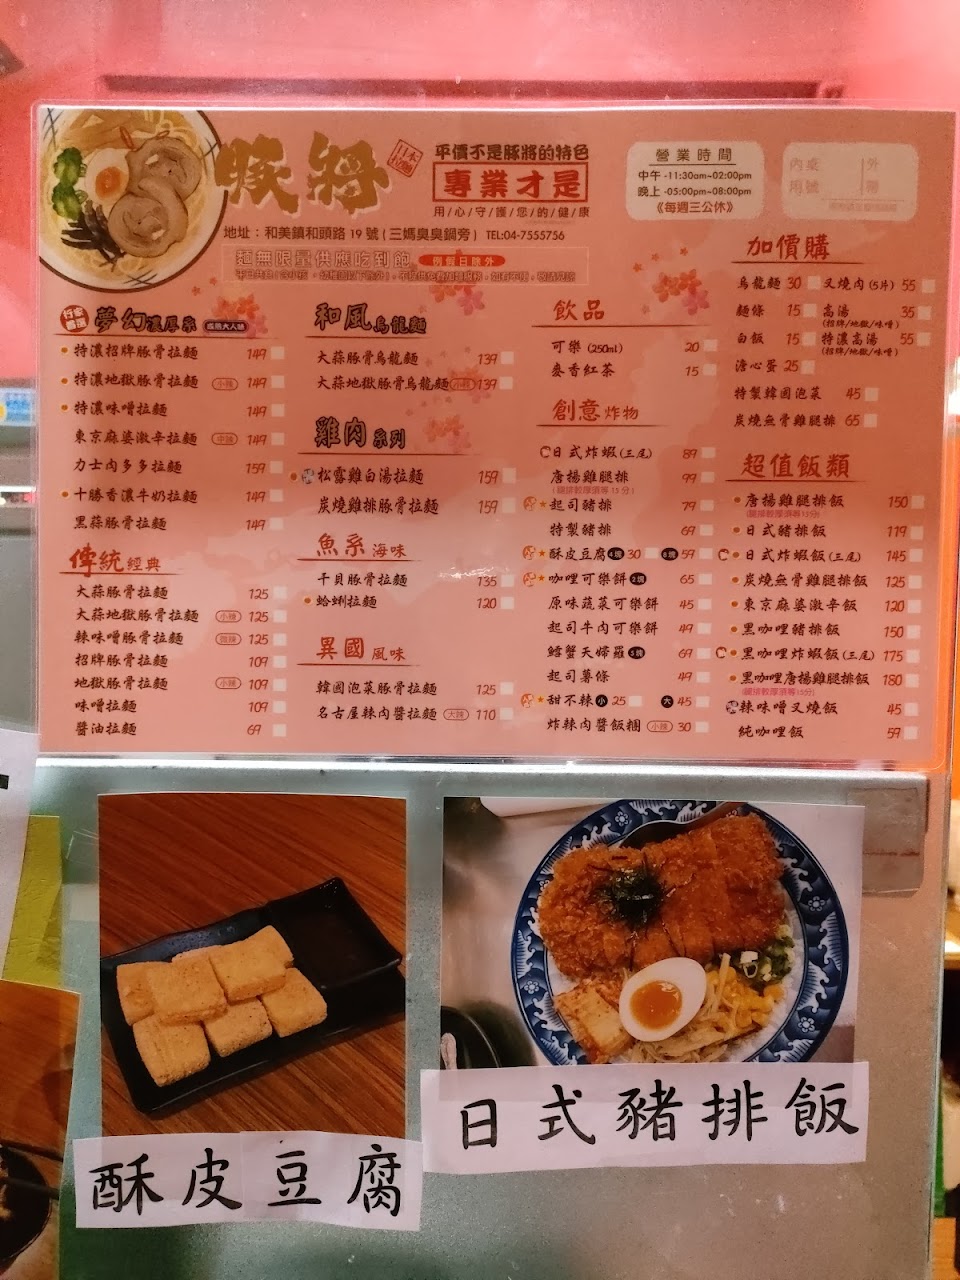 豚將
日本拉麵
平價不是豚將的特色
專業才是
用/心/守/護/您/的/健/康
營業時間
中午 -11:30am~02:00pm
晚上 -05:00pm~08:00pm
《每週三公休》
內桌 外
用號 帶
地址：和美鎮和頭路 19 號 ( 三媽臭臭鍋旁 ) TEL:04-7555756
麵無限量供應吃到飽 例假日除外
夢幻濃厚系
特濃招牌豚骨拉麵 149
特濃地獄豚骨拉麵 小辣 149
特濃味噌拉麵 149
東京麻婆激辛拉麵 中辣 149
力士肉多多拉麵 159
十勝香濃牛奶拉麵 149
黑蒜豚骨拉麵 149
傳統經典
大蒜豚骨拉麵 125
大蒜地獄豚骨拉麵 小辣 125
辣味噌豚骨拉麵 微辣 125
招牌豚骨拉麵 109
地獄豚骨拉麵 小辣 109
味噌拉麵 109
醬油拉麵 69
和風烏龍麵
大蒜豚骨烏龍麵 139
大蒜地獄豚骨烏龍麵 小辣 139
雞肉系列
松露雞白湯拉麵 159
炭燒雞排豚骨拉麵 159
魚系海味
干貝豚骨拉麵 135
蛤蜊拉麵 120
異國風味
韓國泡菜豚骨拉麵 125
名古屋辣肉醬拉麵 大辣 110
飲品
可樂 (250ml) 20
麥香紅茶 15
創意炸物
日式炸蝦(三尾) 89
唐揚雞腿排 99
(雞排較厚須等 15 分)
起司豬排 79
特製豬排 69
酥皮豆腐 30 59
咖哩可樂餅 65
原味蔬菜可樂餅 45
起司牛肉可樂餅 49
鱈蟹天婦羅 69
起司薯條 49
甜不辣 小 25 大 45
炸辣肉醬飯糰 小辣 30
加價購
烏龍麵 30 叉燒肉 (5片) 55
麵條 15 高湯 35
(招牌/地獄/味噌)
白飯 15 特濃高湯 55
(招牌/地獄/味噌)
溏心蛋 25
特製韓國泡菜 45
炭燒無骨雞腿排 65
超值飯類
唐揚雞腿排飯 150
(雞排較厚須等15分)
日式豬排飯 119
日式炸蝦飯(三尾) 145
炭燒無骨雞腿排飯 125
東京麻婆激辛飯 120
黑咖哩豬排飯 150
黑咖哩炸蝦飯(三尾) 175
黑咖哩唐揚雞腿排飯 180
(雞排較厚須等15分)
辣味噌叉燒飯 45
純咖哩飯 59
酥皮豆腐
日式豬排飯